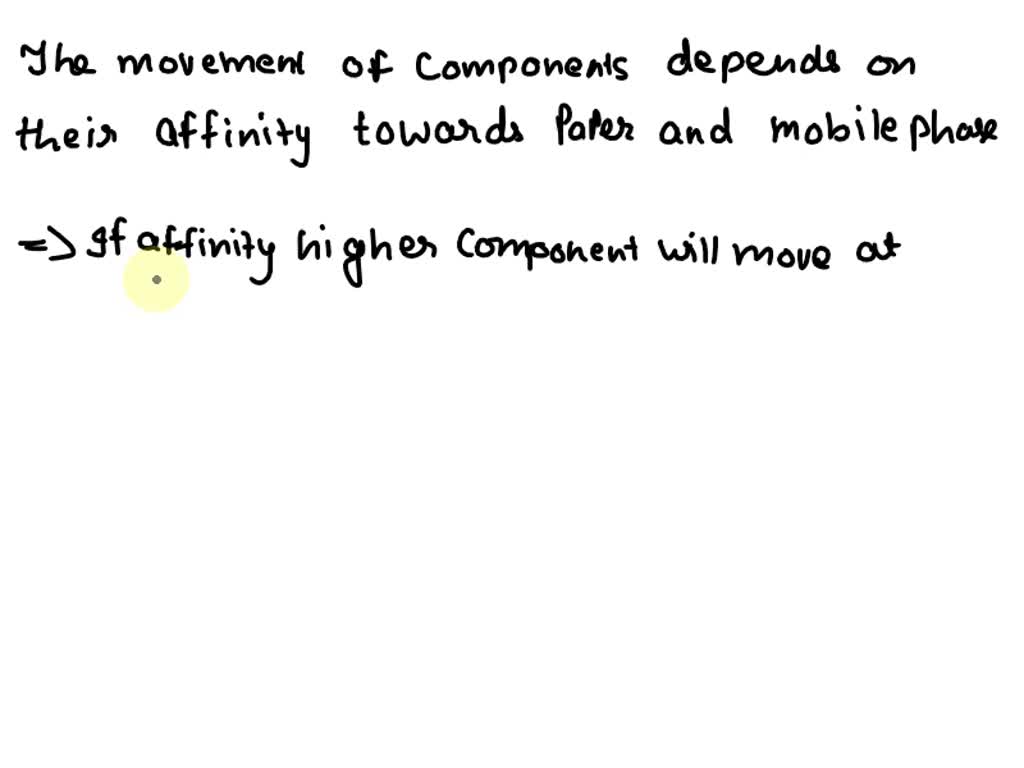 The movement of components depends on
their affinity towards Paper and mobile phase
=> If affinity higher component will move at